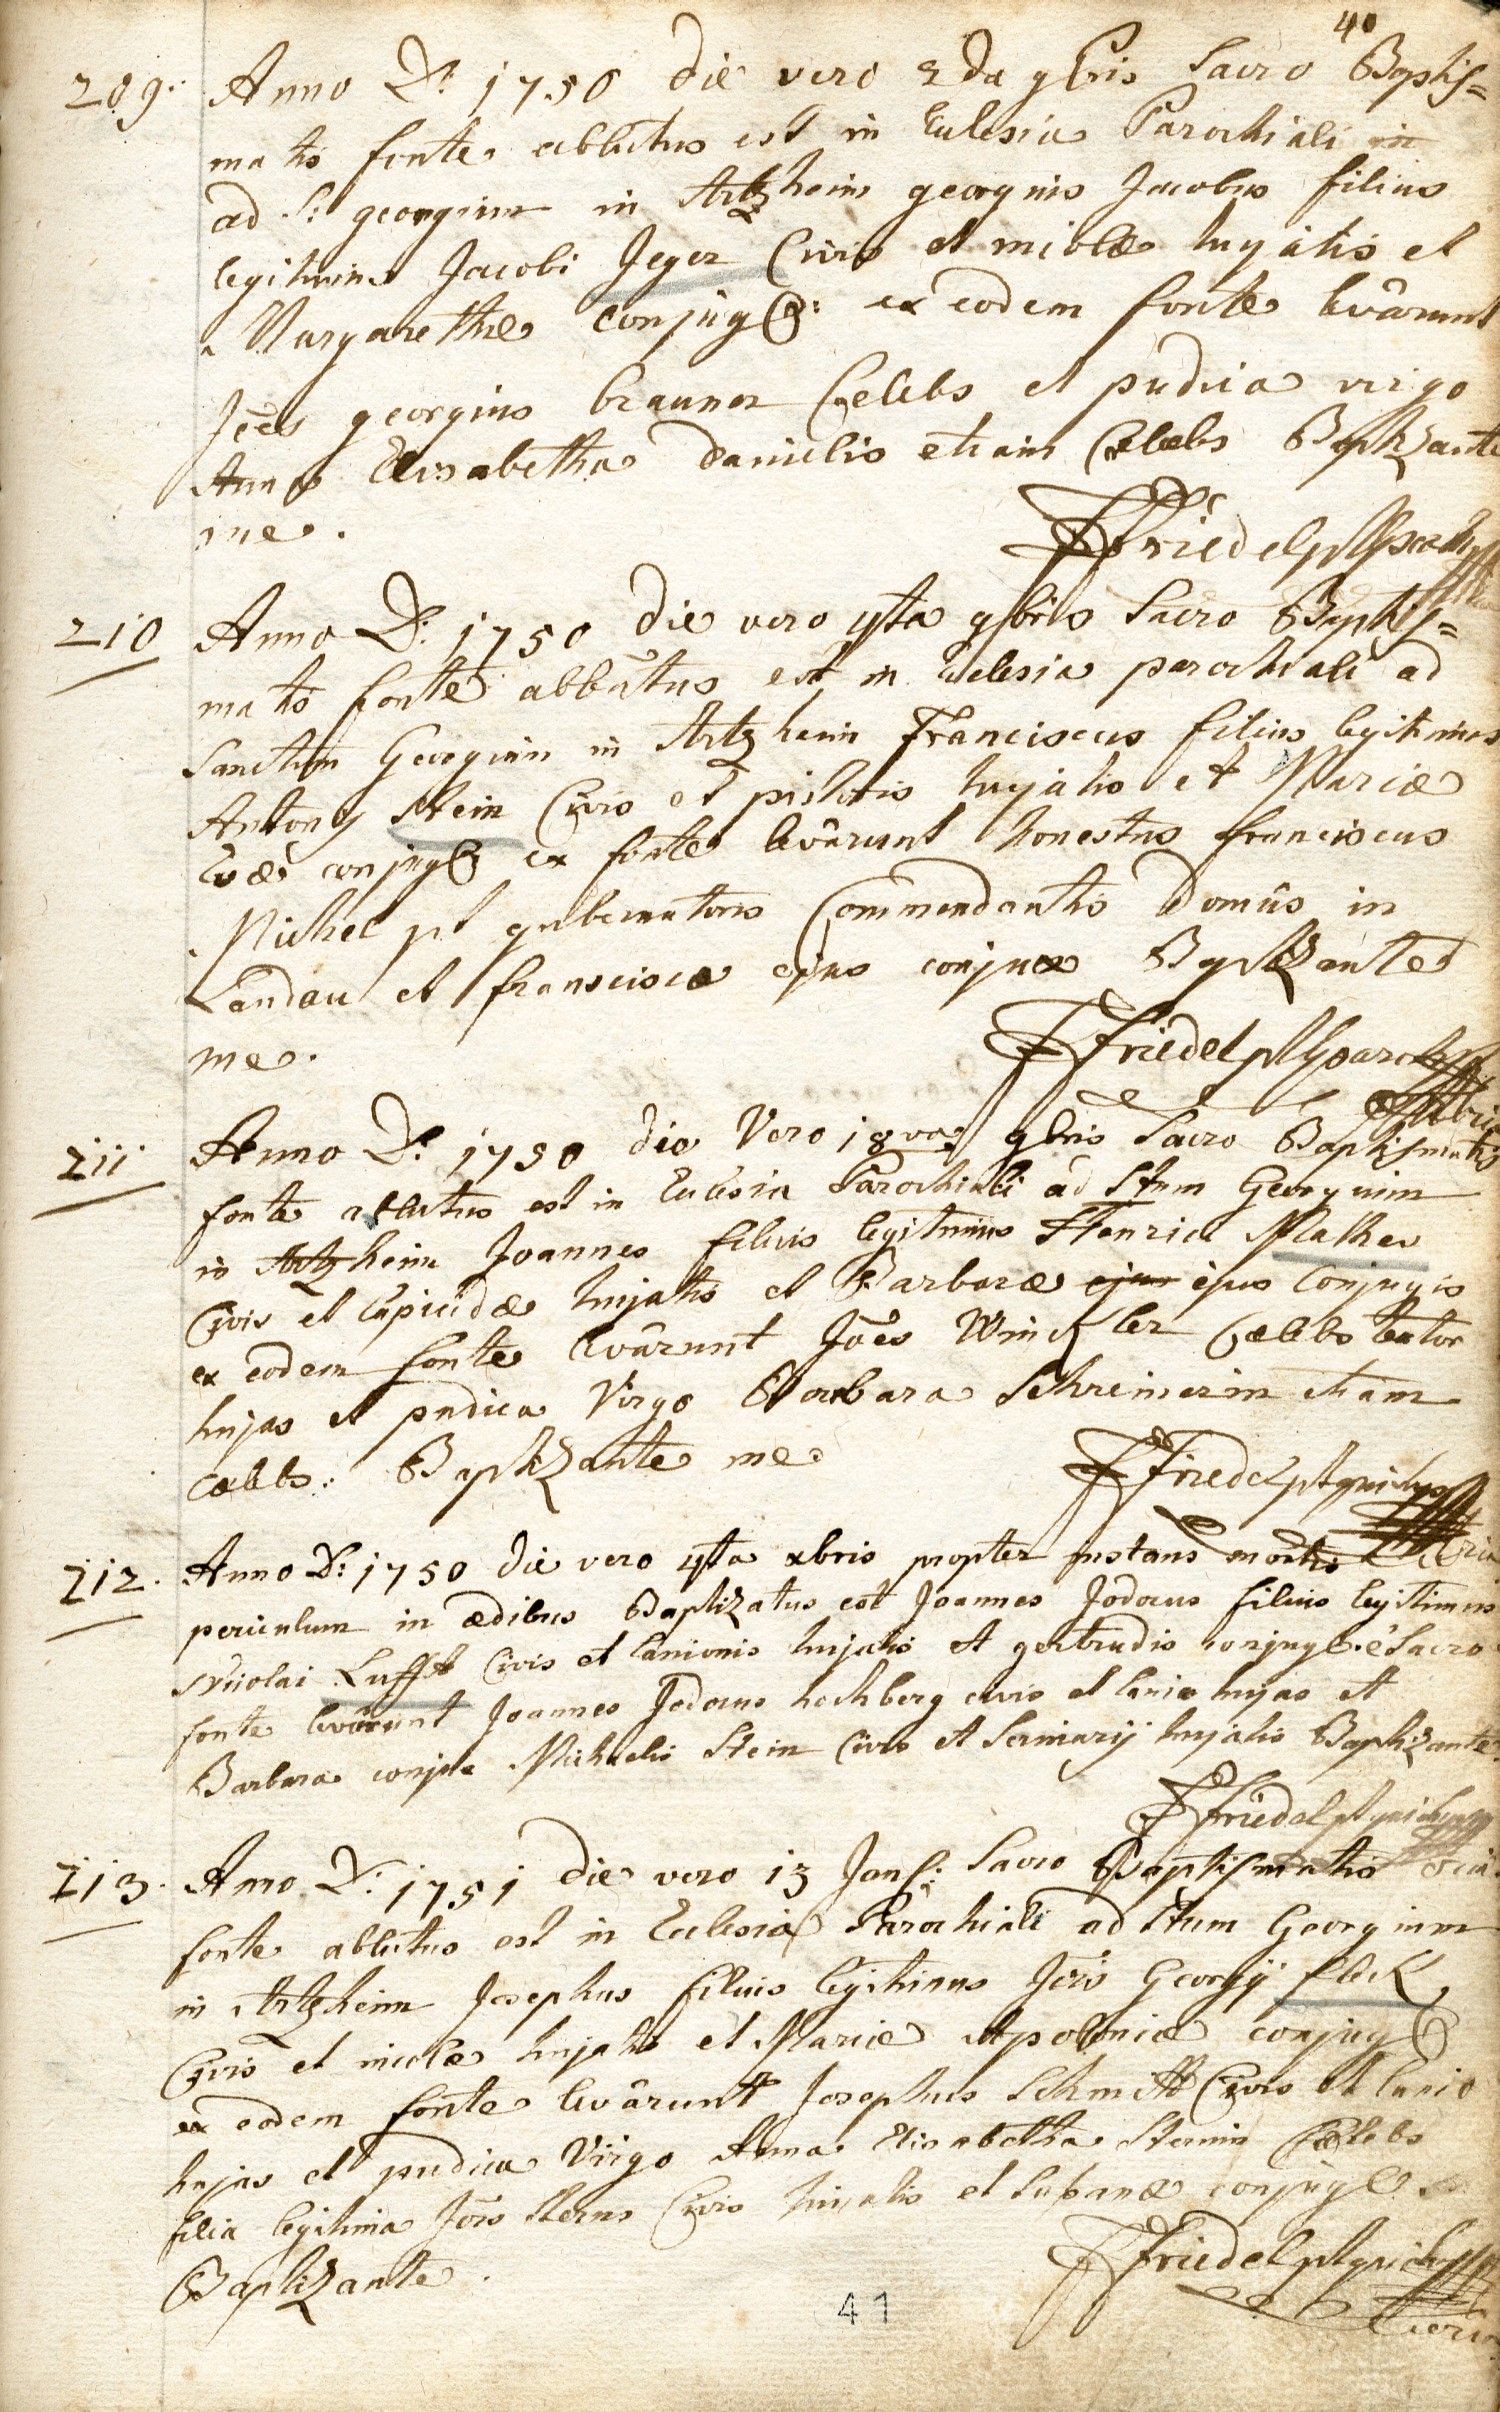 40
209. Anno D: 1750 die vero 2da 9bris Sacro Baptis=
matis fonte ablutus est in Eclesia Parochiali in
ad S: georgium in Artzheim georgius Jacobus filius
legitimus Jacobi Jeger Civis et incolæ hujatis et
Margarethæ conjug: ex eodem fonte levârunt
Joes georgius brauner Celebs et pudica virgo
Anna Elisabetha Danielis etiam Cælebs Baptizante
me.
Friedel
210 Anno D: 1750 die vero 4ta 9bris Sacro Baptis=
matis fonte ablutus est in Eclesia parochiali ad
Sanctum Georgium in Artzheim Franciscus filius legitimus
Antony Stein Civis et pistoris hujatis et Mariæ
Evæ conjug ex fonte levârunt honestus franciscus
Michel pt gubernatoris Commendantis Domûs in
Landau et franscisca ejus conjux Baptizante
me.
Friedel
211 Anno D: 1750 die Vero 18va 9bris Sacro Baptismatis
fonte ablutus est in Eclesia Parochiali ad Stum Georgium
in Artzheim Joannes filius legitimus Henrici Matheu
Civis et lapicidæ hujatis et Barbaræ ejus ejus Conjugis
ex eodem fonte levârunt Joes Winckler Cælebs textor
hujas et pudica Virgo Barbara Schreinerin etiam
cælebs: Baptizante me
Friedel
212. Anno D: 1750 die vero 4ta xbris propter instans mortis
periculum in ædibus Baptizatus est Joannes Jodocus filius legitimus
Nicolai Lufft Civis et lanionis hujatis et gertrudis conjug: è Sacro
fonte levârunt Joannes Jodocus hochberg civis et lanio hujas et
Barbara conjux Michaelis Stein Civis et Scriniarij hujatis Baptizante
Friedel
213. Anno D: 1751 die vero 13 Jan: Sacro Baptismatis
fonte ablutus est in Ecclesia Parochiali ad Stum Georgium
in Artzheim Josephus filius legitimus Jois Georgij fleck
Civis et incolæ hujatis et Mariæ Apoloniæ conjug
ex eodem fonte levârunt Josephus Schmitt Civis et lanio
hujas et pudica Virgo Anna Elisabetha Sternin Cælebs
filia legitima Jois Sterns Civis hujatis et Susanæ conjug
Baptizante.
Friedel
41